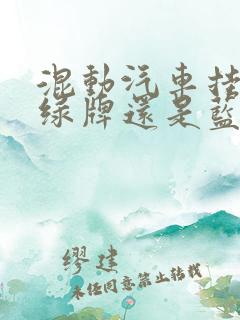 混動汽車挂
綠牌還是藍
繆建
未经同意禁止转载